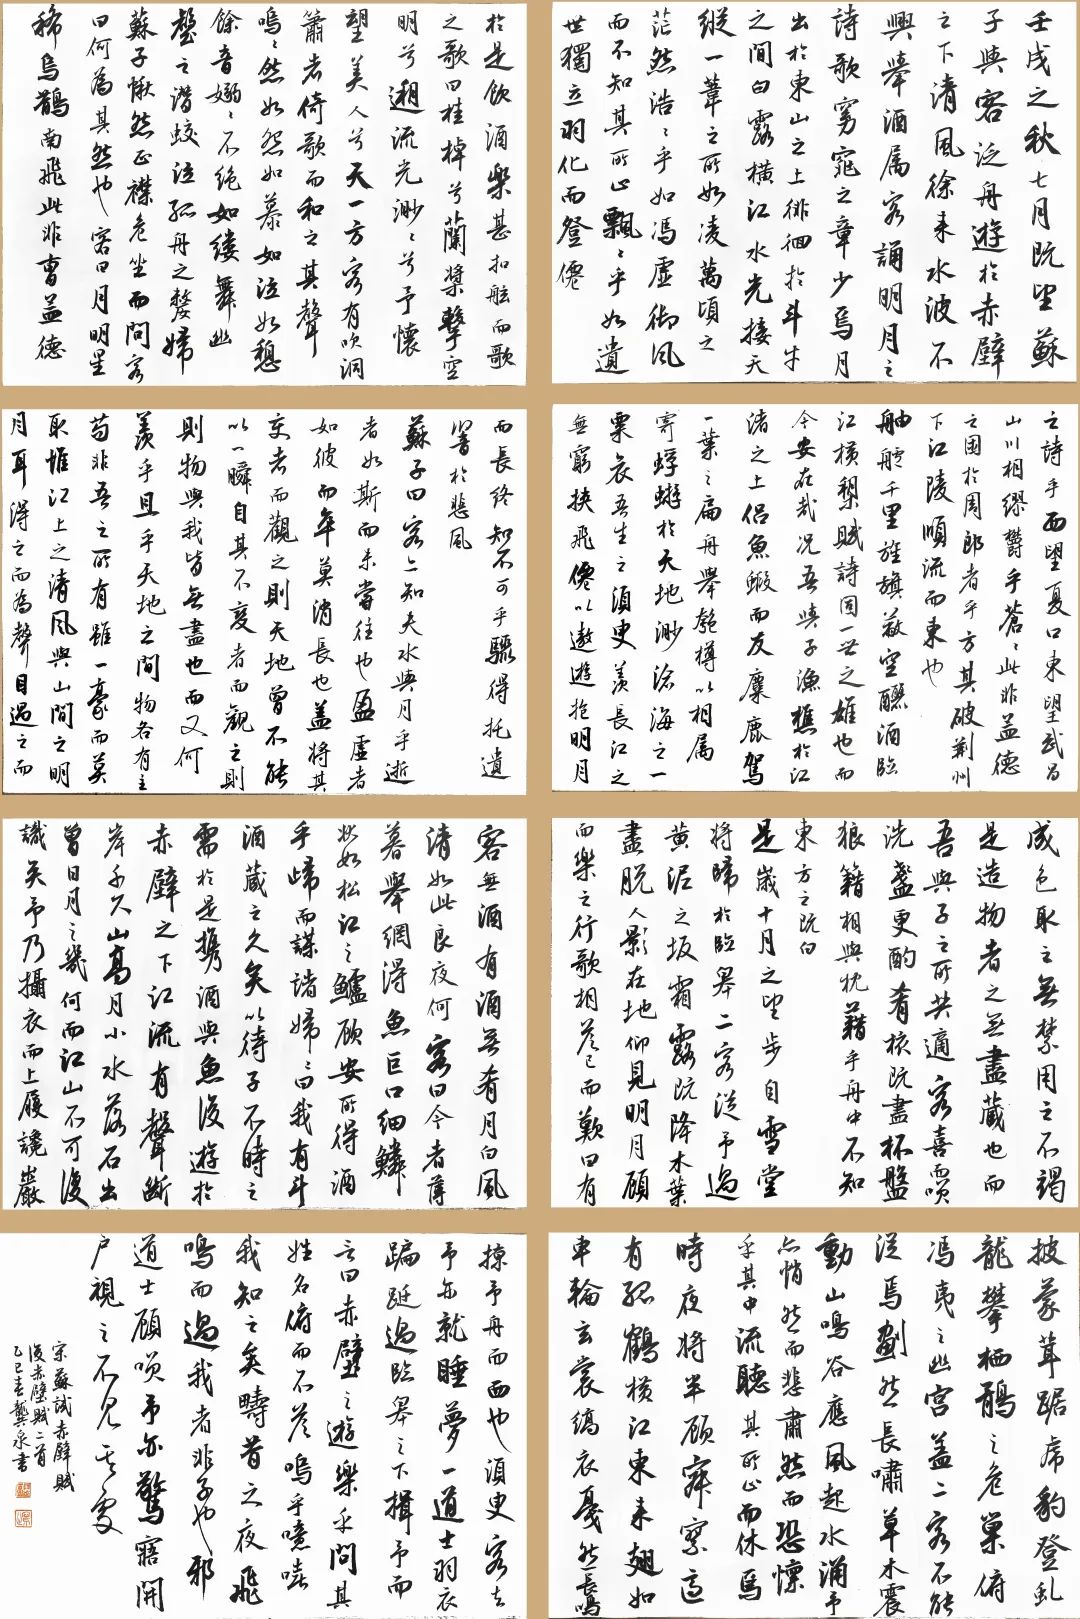 壬戌之秋七月既望蘇
子與客泛舟遊於赤壁
之下清風徐来水波不
興舉酒属客誦明月之
詩歌窈窕之章少焉月
出於東山之上徘徊於斗牛
之間白露橫江水光接天
縱一葦之所如淩萬頃之
茫然浩〻乎如馮虛御风
而不知其所止飄〻乎如遺
世獨立羽化而登僊
於是飲酒樂甚扣舷而歌
之歌曰桂棹兮蘭槳擊空
明兮遡流光渺〻兮予懷
望美人兮天一方客有吹洞
簫者倚歌而和之其聲
嗚〻然如怨如慕如泣如愬
餘音嫋〻不絕如縷舞幽
壑之潛蛟泣孤舟之嫠婦
蘇子愀然正襟危坐而問客
曰何為其然也客曰月明星
稀烏鵲南飛此非曹孟德
之詩乎西望夏口東望武昌
山川相繆鬱乎蒼〻此非孟德
之困於周郎者乎方其破荆州
下江陵順流而東也
舳艫千里旌旗蔽空釃酒臨
江橫槊賦詩固一世之雄也而
今安在哉況吾與子漁樵於江
渚之上侣魚蝦而友麋鹿駕
一葉之扁舟舉匏樽以相属
寄蜉蝣於天地渺滄海之一
粟哀吾生之須臾羨長江之
無窮挾飛僊以遨遊抱明月
而長終知不可乎驟得托遺
響於悲風
蘇子曰客亦知夫水與月乎逝
者如斯而未嘗往也盈虛者
如彼而卒莫消長也蓋將其
变者而觀之則天地曾不能
以一瞬自其不變者而觀之則
則物與我皆無盡也而又何
羨乎且乎天地之間物各有主
苟非吾之所有雖一毫而莫
取惟江上之清風與山間之明
月耳得之而為聲目遇之而
成色取之無禁用之不竭
是造物者之无盡藏也而
吾與子之所共適客喜而笑
洗盞更酌肴核既盡杯盤
狼籍相與枕藉乎舟中不知
東方之既白
是歲十月之望步自雪堂
將歸於臨皋二客從予過
黄泥之坂霜露既降木葉
盡脱人影在地仰見明月顧
而樂之行歌相答已而歎曰有
客無酒有酒無肴月白風
清如此良夜何客曰今者薄
暮舉網得魚巨口細鱗
狀如松江之鱸顧安所得酒
乎歸而謀諸婦〻曰我有斗
酒藏之久矣以待子不時之
需於是携酒與魚復遊於
赤壁之下江流有聲断
岸千尺山高月小水落石出
曾日月之幾何而江山不可復
識矣予乃攝衣而上履巉巖
披蒙茸踞虎豹登虬
龍攀栖鶻之危巢俯
馮夷之幽宫蓋二客不能
從焉劃然長嘯草木震
動山鳴谷應風起水涌予
亦悄然而悲肅然而恐懔
乎其中流聽其所止而休焉
時夜將半顧寂寥適
有孤鶴橫江東来翅如
車輪玄裳縞衣戛然長鳴
掠予舟而西也須臾客去
予亦就睡夢一道士羽衣
蹁躚過臨皋之下揖予而
言曰赤壁之遊樂乎問其
姓名俯而不答嗚乎噫嘻
我知之矣疇昔之夜飛
鳴而過我者非子也邪
道士顧笑予亦驚寤開
户視之不見其處
宋蘇軾赤壁賦
後赤壁賦二首
乙巳春龔泉書